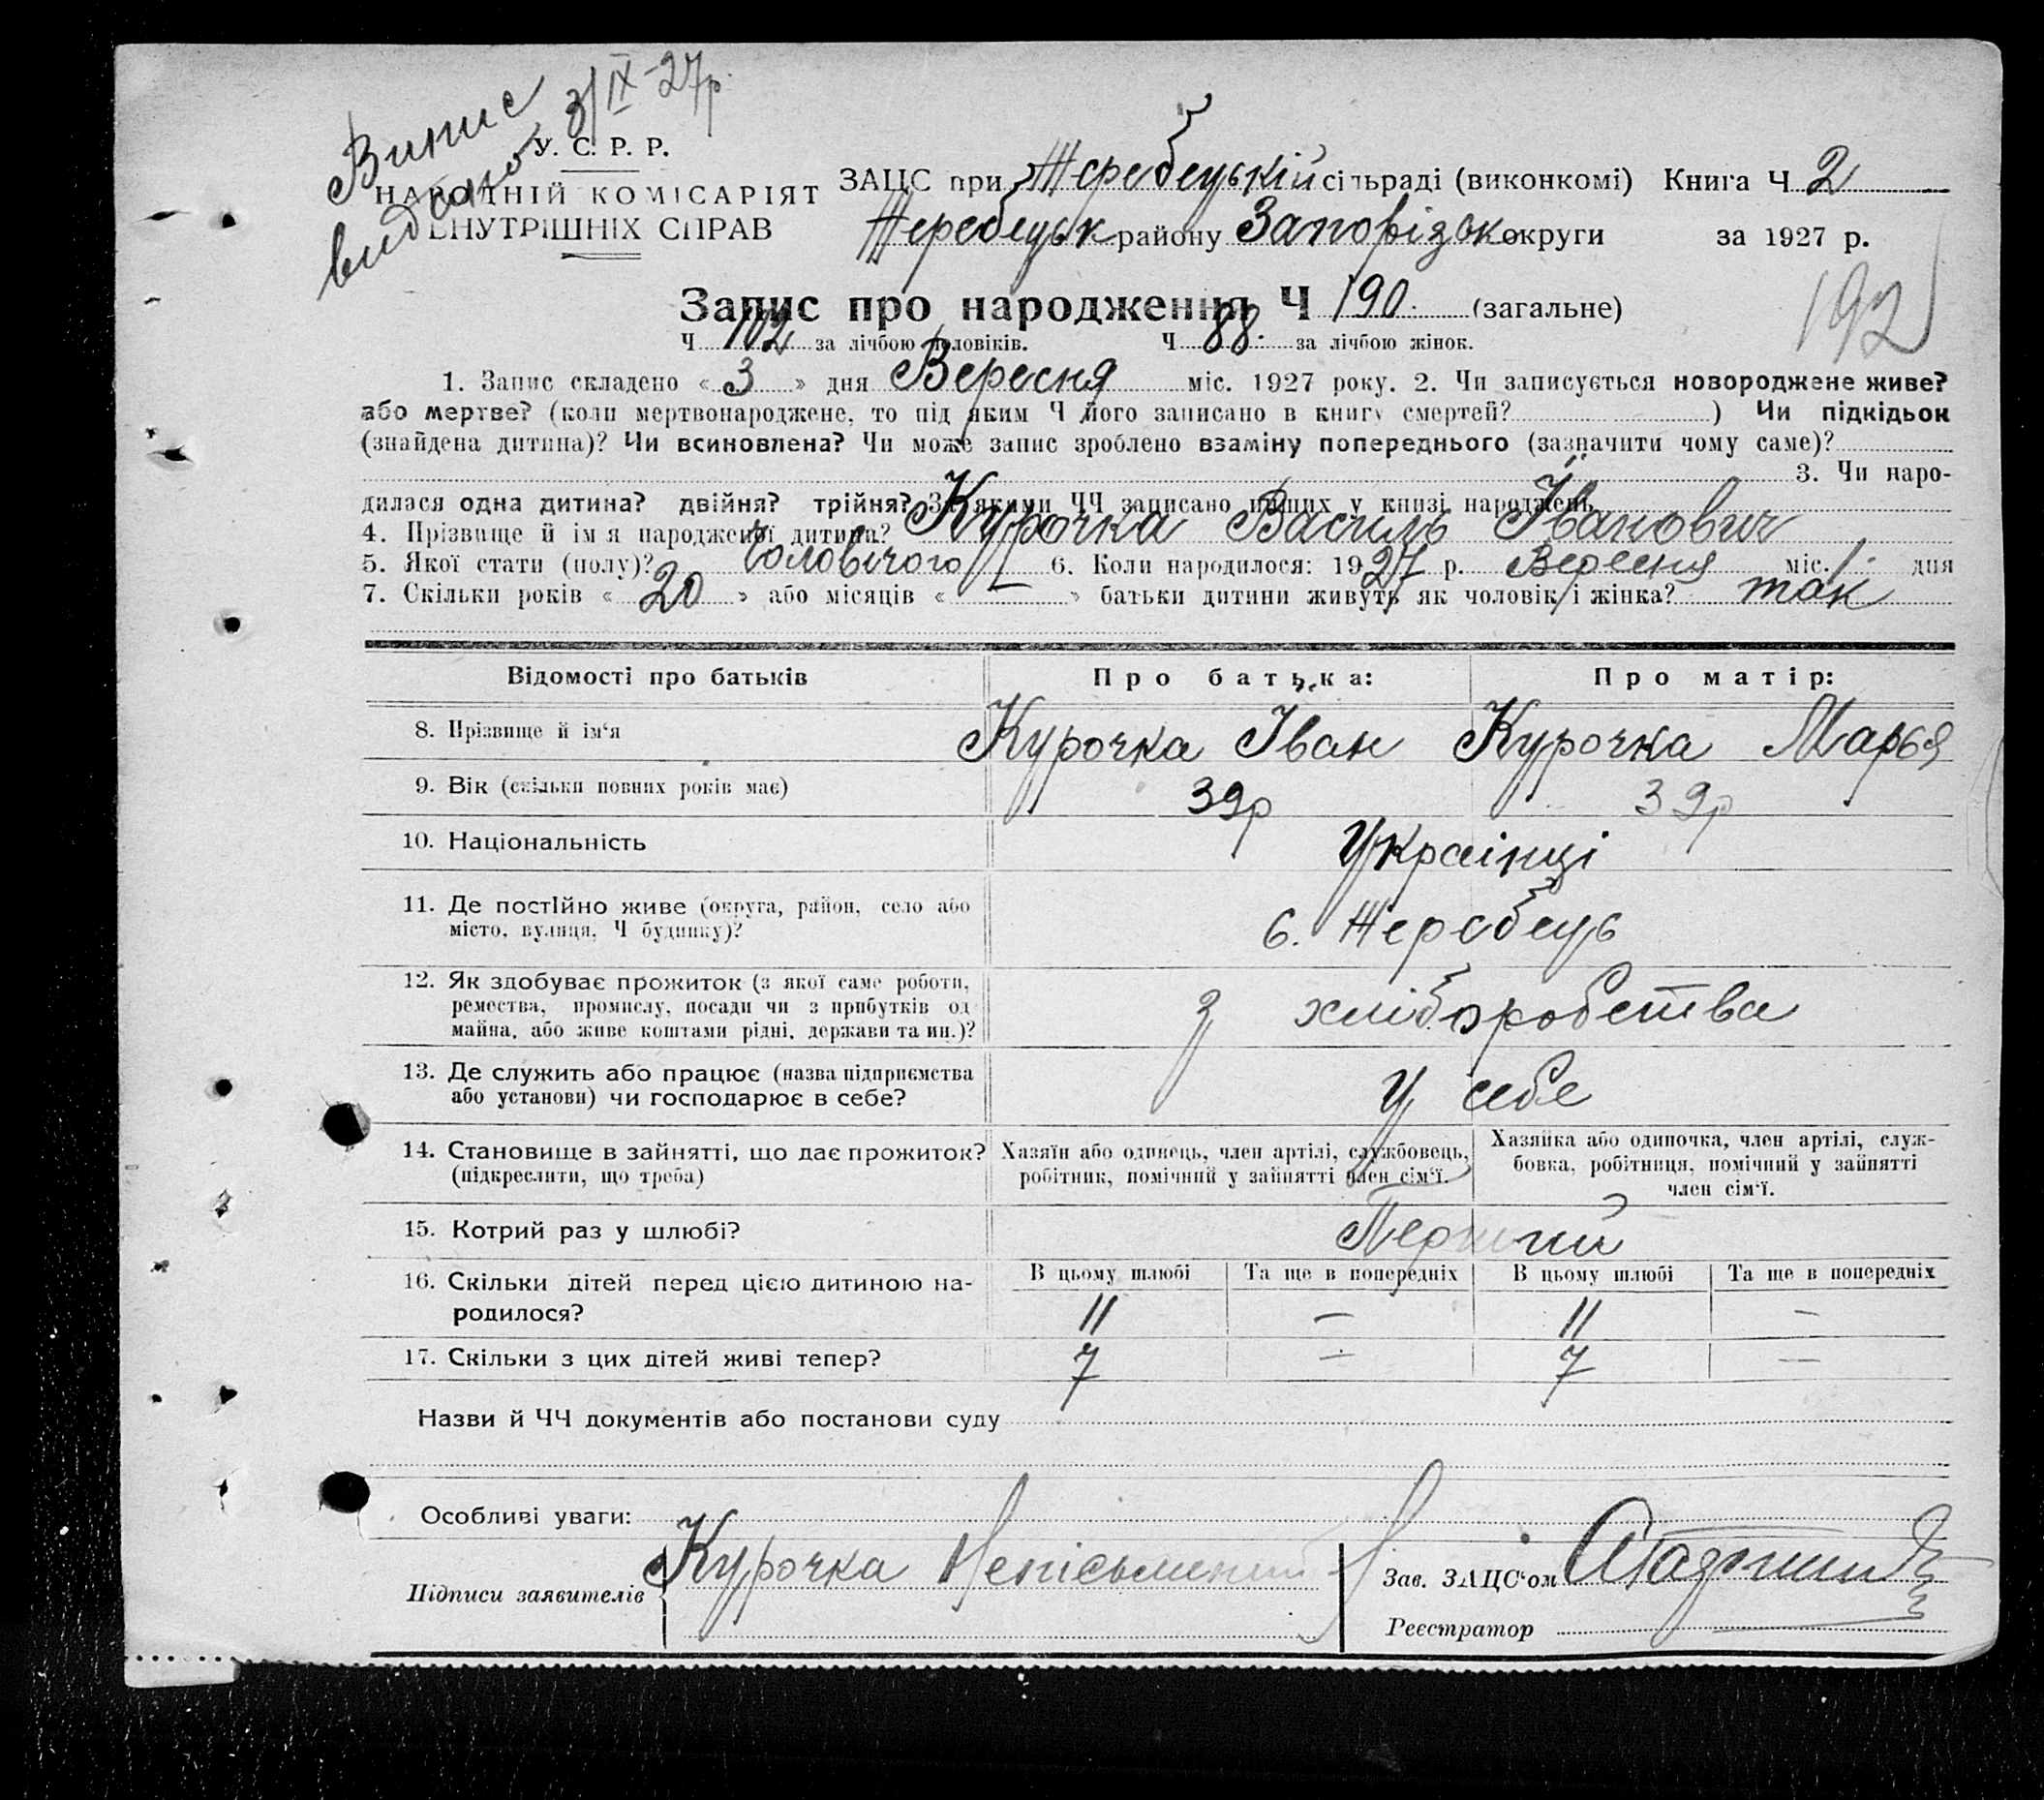 Випис
видано 3/IX-27р.
У. С. Р. Р.
НАРОДНІЙ КОМІСАРІЯТ
ВНУТРІШНІХ СПРАВ
ЗАЦС при Жеребецькій сільраді (виконкомі) Книга Ч 2
Жеребецьк району Запорізьк округи за 1927 р.
192
Запис про народження Ч 190. (загальне)
Ч 102 за лічбою чоловіків. Ч 88. за лічбою жінок.
1. Запис складено « 3 » дня Вересня міс. 1927 року. 2. Чи записується новороджене живе?
або мертве? (коли мертвонароджене, то під яким Ч його записано в книгу смертей? ) Чи підкідьок
(знайдена дитина)? Чи всиновлена? Чи може запис зроблено взаміну попереднього (зазначити чому саме)?
3. Чи наро-
дилася одна дитина? двійня? трійня? За якими ЧЧ записано инших у книзі народжень
4. Прізвище й ім'я народженої дитини? Курочка Василь Іванович
5. Якої стати (полу)? Чоловічого 6. Коли народилося: 1927 р. Вересня міс. 1. дня
7. Скільки років « 20 » або місяців « — » батьки дитини живуть як чоловік і жінка? так
Відомості про батьків Про батька: Про матір:
8. Прізвище й ім'я Курочка Іван Курочка Марья
9. Вік (скільки повних років має) 39р 39р
10. Національність Українці
11. Де постійно живе (округа, район, село або
місто, вулиця, Ч будинку)? с. Жеребець
12. Як здобуває прожиток (з якої саме роботи,
ремества, промислу, посади чи з прибутків од
майна, або живе коштами рідні, держави та ин.)? З хліборобства
13. Де служить або працює (назва підприємства
або установи) чи господарює в себе? У себе
14. Становище в зайнятті, що дає прожиток?
(підкреслити, що треба)
Хазяїн або одинець, член артілі, службовець,
робітник, помічний у зайнятті член сім'ї.
Хазяйка або одиночка, член артілі, служ-
бовка, робітниця, помічний у зайнятті
член сім'ї.
15. Котрий раз у шлюбі? Перший
16. Скільки дітей перед цією дитиною на-
родилося?
В цьому шлюбі Та ще в попередніх В цьому шлюбі Та ще в попередніх
11 — 11 —
17. Скільки з цих дітей живі тепер? 7 — 7 —
Назви й ЧЧ документів або постанови суду
Особливі уваги:
Підписи заявителів Курочка Непісьменний
Зав. ЗАЦС'ом
Реєстратор